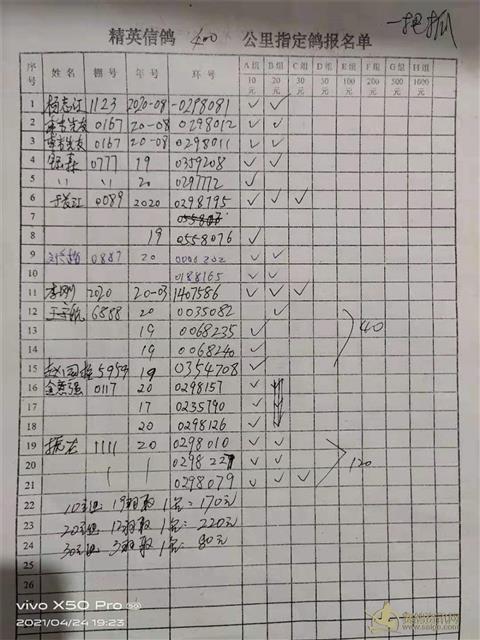 一把抓
精英信鸽 400 公里指定鸽报名单
序号 姓名 棚号 年号 环号 A组10元 B组20元 C组30元 D组50元 E组100元 F组200元 G组500元 H组1000元
1 杨志江 1123 2020-08 -0298081 ✓ ✓
2 0167 20-08 0298012 ✓ ✓
3 0167 20-08 0298011 ✓ ✓
4 0777 19 0359208 ✓ ✓
5 〃 〃 20 0297772 ✓
6 于长江 0089 2020 0298795 ✓ ✓ ✓
7
8 19 0558076 ✓
9 0887 20 ✓ ✓
10 0188165 ✓ ✓
11 李刚 2020 20-03 1407586 ✓ ✓ ✓
12 王宇航 6888 20 0035082 ✓
13 19 0068235 ✓
14 19 0068240 ✓
40
15 5959 19 0354708 ✓ ✓
16 0117 20 0298157 ✓
17 17 0235790 ✓
18 20 0298126 ✓
19 1111 20 0298010 ✓ ✓
20 ✓ ✓
21 0298079 ✓ ✓ ✓
120
22 10元组 19羽取1名=170元
23 20元组 12羽取1名=220元
24 30元组 3羽取1名=80元
25
26
vivo X50 Pro
2021/04/24 19:23